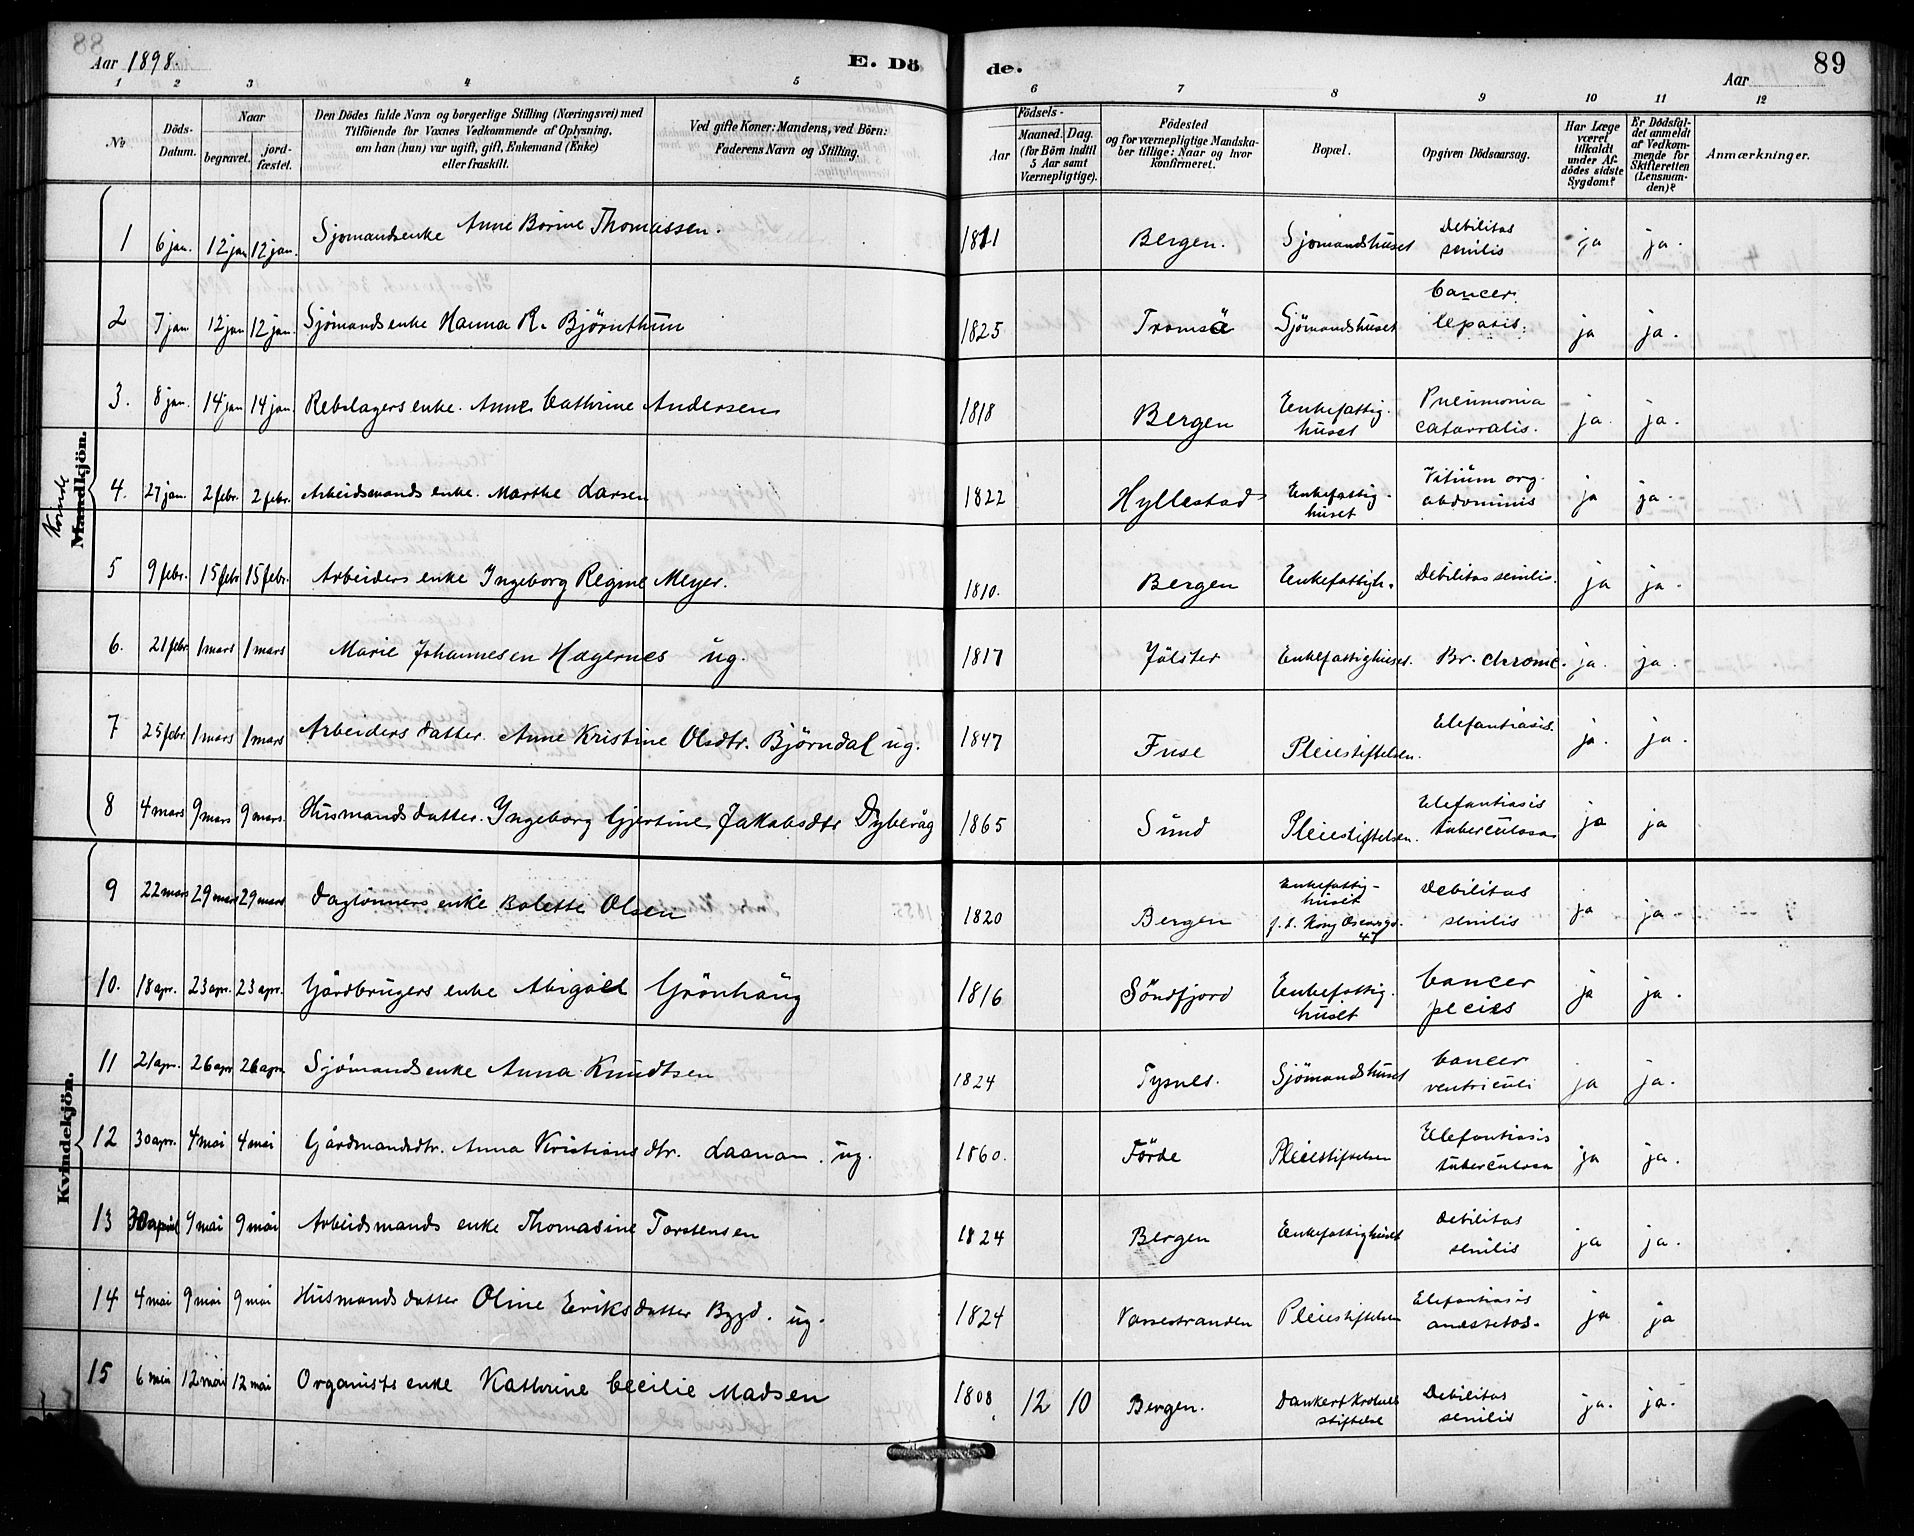 88
Aar 1898.
E. Dö
de.
Aar
89
1 2 3 4 5 6 7 8 9 10 11 12
No
Döds-Datum.
Naar
begravet.
jord-fæstet.
Den Dödes fulde Navn og borgerlige Stilling (Næringsvei) med
Tilföiende for Voxnes Vedkommende af Oplysning,
om han (hun) var ugift, gift, Enkemand (Enke)
eller fraskilt.
Ved gifte Koner: Mandens, ved Börn:
Faderens Navn og Stilling.
Födsels-
Aar
Maaned. Dag.
(for Börn indtil
5 Aar samt
Værnepligtige).
Födested
og for værnepligtige Mandska-
ber tillige: Naar og hvor
konfirmeret.
Bopæl.
Opgiven Dödsaarsag.
Har Læge
været
tilkaldt
under Af-
dödes sidste
Sygdom?
Er Dödsfal-
det anmeldt
af Vedkom-
mende for
Skifteretten
(Lensman-
den)?
Anmærkninger.
Kvinde
Mandkjön.
Kvindekjön.
1 6 jan. 12 jan 12 jan. Sjomandsenke Anne Borine Thomassen. 1811 Bergen. Sjomandshuset Debilitas senilis ja ja.
2 7 jan 12 jan 12 jan. Sjömands enke Hanna R. Bjørnthun 1825 Tromsö Sjömandshuset Cancer lepatis. ja ja.
3. 8 jan. 14 jan 14 jan. Rebslagers enke. Anne Cathrine Andersen 1818 Bergen Enkefattig-huset Pneumonia catarralis. ja. ja.
4. 27 jan. 2 febr. 2 febr. Arbeidsmands enke. Marthe Larsen 1822 Hyllestad Enkefattig-huset Vitium org. abdominis ja ja.
5 9 febr. 15 febr 15 febr. Arbeiders enke Ingeborg Regine Meyer. 1810. Bergen Enkefattigh. Debilitas senilis. ja ja.
6. 21 febr 1 mars 1 mars Marie Johannesen Hægernes ug. 1817 Jölster Enkefattighuset. Br. chronic. ja. ja.
7 25 febr. 1 mars 1 mars Arbeiders datter. Anne Kristine Olsdtr. Bjørndal ug. 1847 Fuse Pleiestiftelsen. Elefantiasis. ja. ja.
8 4 mars 9 mars 9 mars. Husmands datter. Ingeborg Gjertine Jakobsdtr Dybevåg 1865 Sund Pleiestiftelsen. Elefantiasis tuberculosa ja ja
9 22 mars 29 mars 29 mars Daglönners enke Bolette Olsen 1820 Bergen Enkefattig-huset f. d. Kong Oscarsgd. 47 Debilitas senilis ja ja
10. 18 apr. 23 apr. 23 apr. Gårdbrugers enke Abigael Grönhaug 1816 Söndfjord Enkefattig-huset Cancer ja ja.
11 21 apr. 26 apr 26 apr. Sjömands enke Anna Knudtsen 1824 Tysnes. Sjömandshuset Cancer ventriculi ja ja.
12 30 apr. 4 mai 4 mai Gårdmandsdtr. Anna Kristiansdtr. Laanan. ug. 1860. Förde Pleiestiftelsen Elefantiasis tuberculosa ja ja.
13 30 april 9 mai 9 mai Arbeidsmands enke Thomasine Torstensen 1824 Bergen Enkefattighuset Debilitas senilis ja ja.
14 4 mai 9 mai 9 mai Husmands datter Oline Eriksdatter Bygd. ug. 1824 Vossestranden Pleiestiftelsen Elefantiasis ja ja
15 6 mai 12 mai 12 mai Organists enke Kathrine Cecilie Madsen 1808 12 10 Bergen. Dankert Krohns stiftelse Debilitas senilis ja. ja.